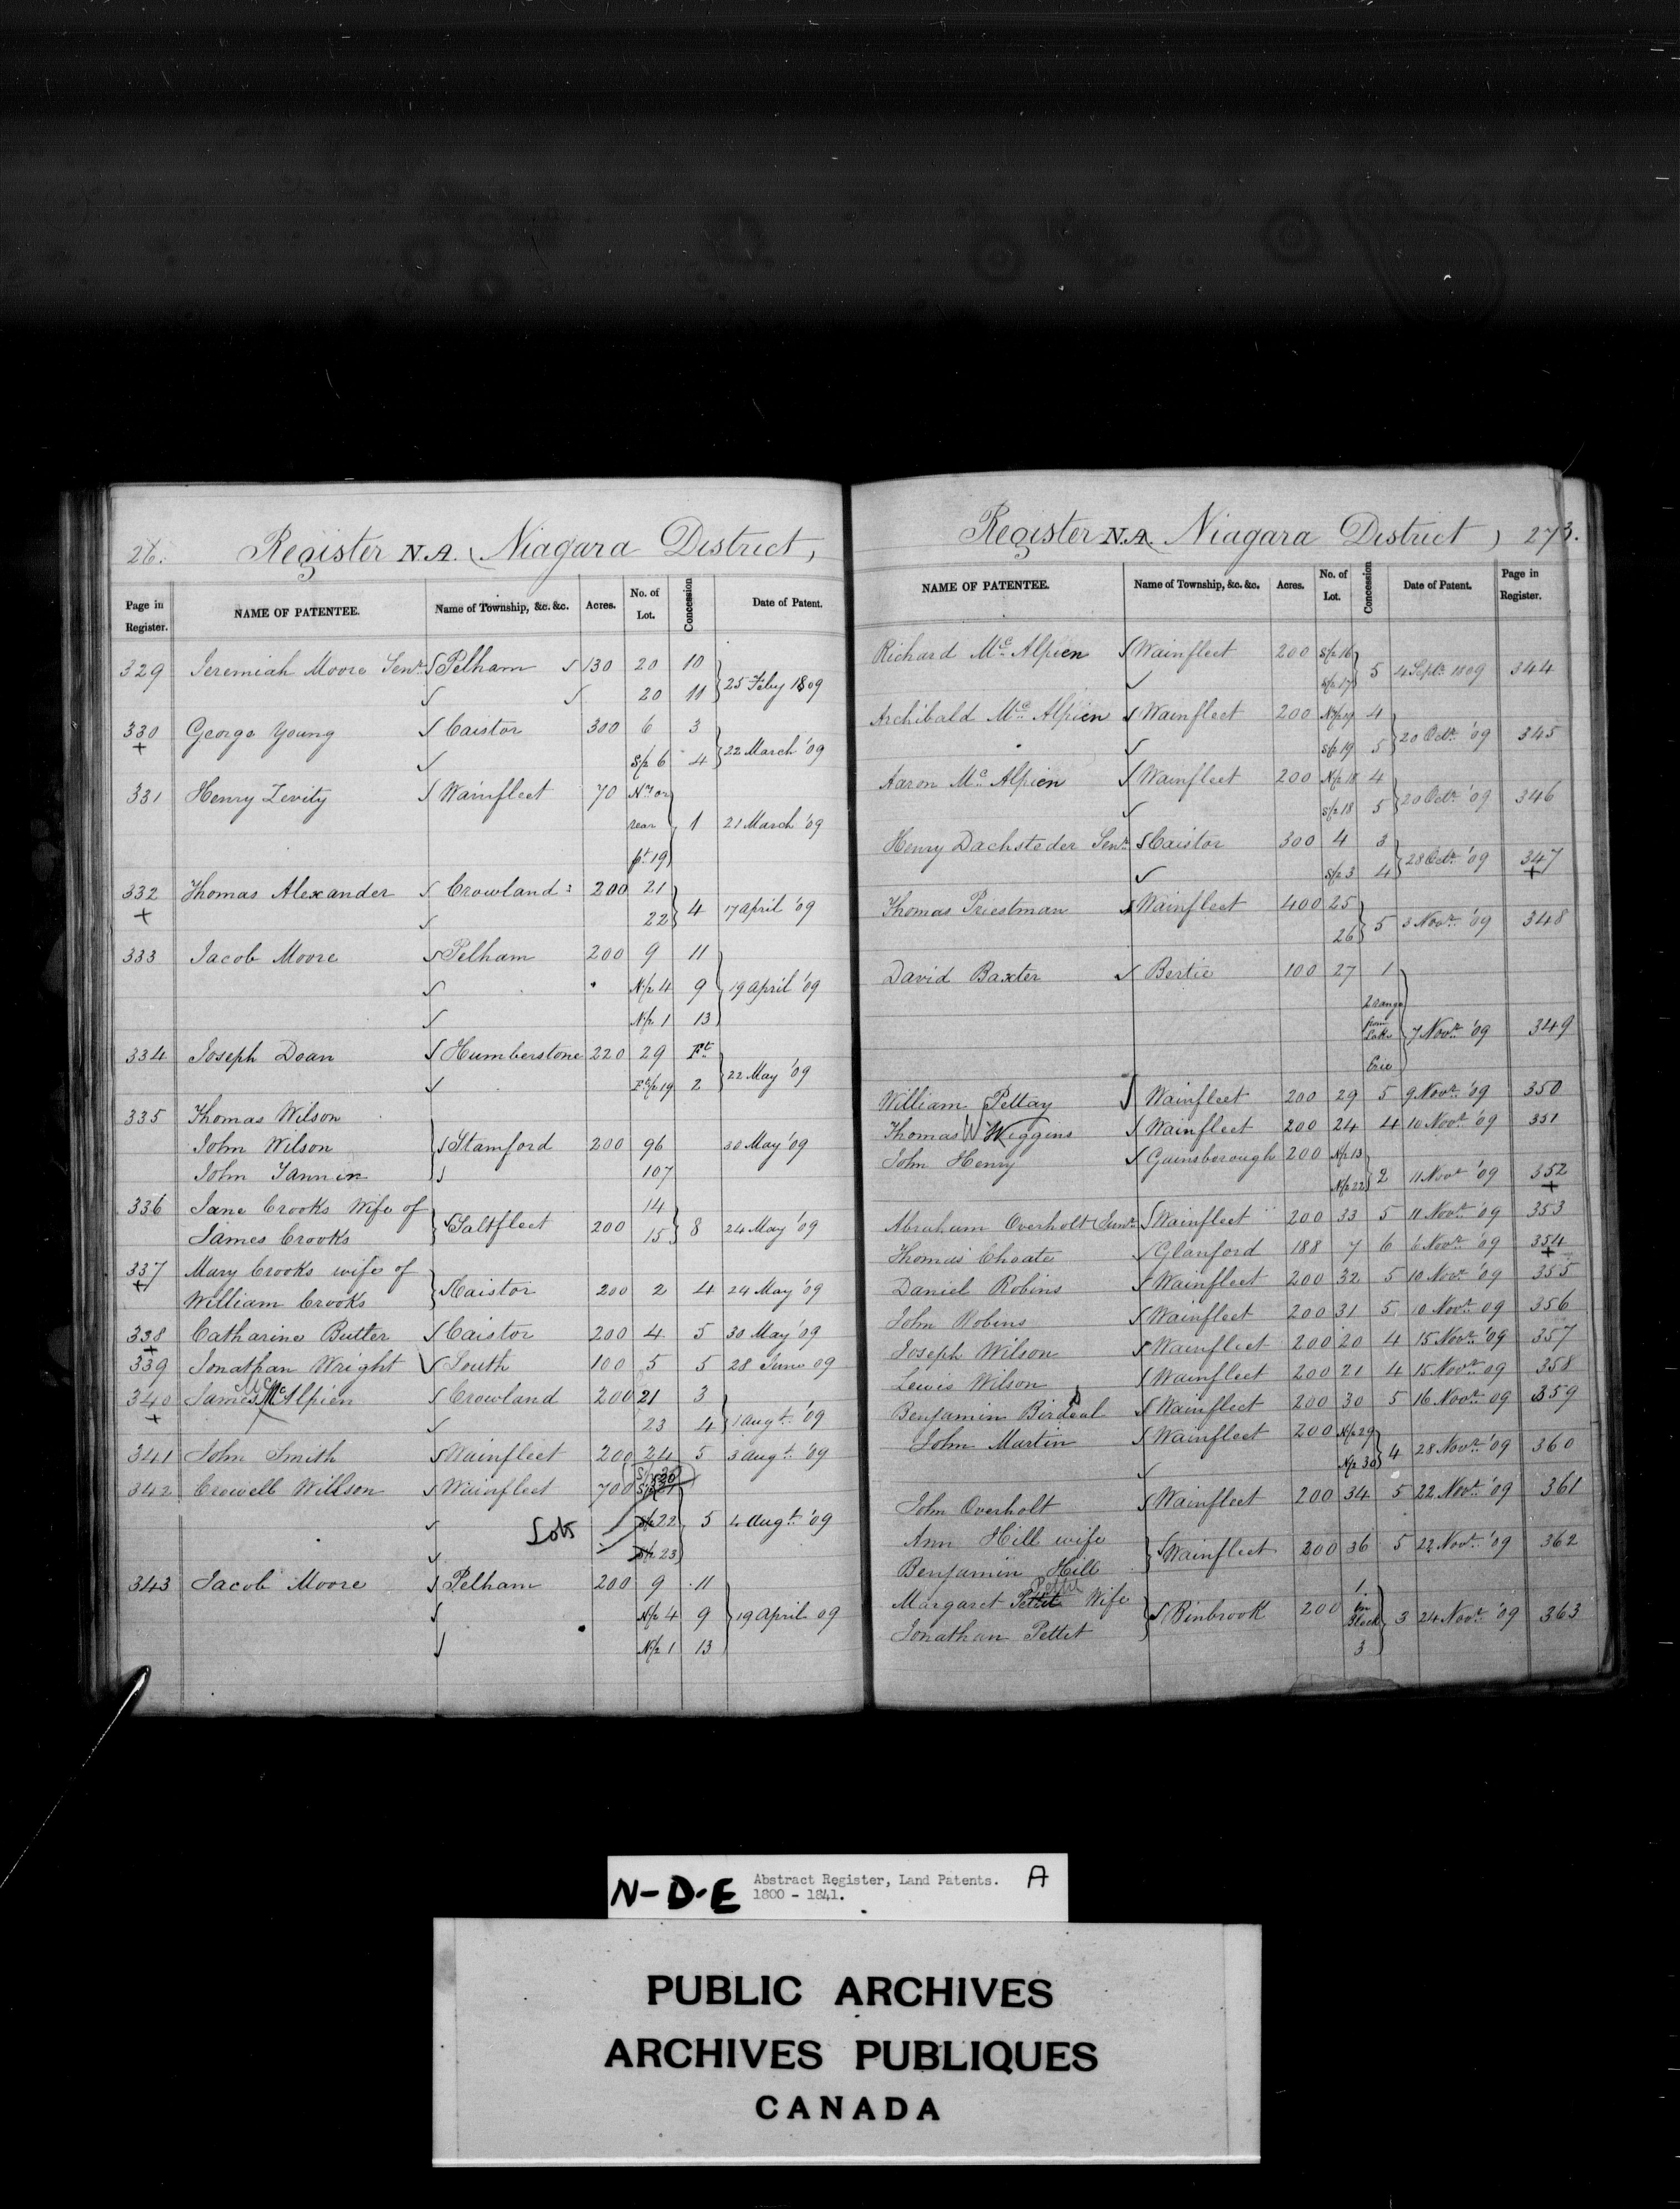 26. Register N.A. (Niagara District,
Page in Register. NAME OF PATENTEE. Name of Township, &c. &c. Acres. No. of Lot. Concession Date of Patent.
329 Jeremiah Moore Senr. Pelham 130 20 10
20 11 25 Feby 1809
330 George Young Caistor 300 6 3
+ S/2 6 4 22 March '09
331 Henry Zevity Wainfleet 70 No. or
rear 1 21 March '09
pt 19
332 Thomas Alexander Crowland 200 21
+ 22 4 17 April '09
333 Jacob Moore Pelham 200 9 11
N/2 4 9 19 April '09
N/2 1 13
334 Joseph Dean Humberstone 220 29 Ft
19 2 22 May '09
335 Thomas Wilson
John Wilson Stamford 200 96 30 May '09
John Tanner 107
336 Jane Crooks Wife of 14
James Crooks Saltfleet 200 15 8 24 May '09
337 Mary Crooks wife of
+ William Crooks Caistor 200 2 4 24 May '09
338 Catharine Butler Caistor 200 4 5 30 May '09
+
339 Jonathan Wright Louth 100 5 5 28 June 09
340 James McAlpien Crowland 200 21 3
+ 23 4 1 Augt. '09
341 John Smith Wainfleet 200 24 5 3 Augt. '09
342 Crowell Willson Wainfleet 700
Lots S/2 22 5 4 Augt. '09
S/2 23
343 Jacob Moore Pelham 200 9 11
N/2 4 9 19 April 09
N/2 1 13
Register N.A. (Niagara District) 273.
NAME OF PATENTEE. Name of Township, &c. &c. Acres. No. of Lot. Concession Date of Patent. Page in Register.
Richard McAlpien Wainfleet 200 S/2 16
S/2 17 5 4 Septr. 1809 344
Archibald McAlpien Wainfleet 200 N/2 19 4
S/2 19 5 20 Octr. '09 345
Aaron McAlpien Wainfleet 200 N/2 18 4
S/2 18 5 20 Octr. '09 346
Henry Dachsteder Senr. Caistor 300 4 3
S/2 3 4 28 Octr. '09 347
+
Thomas Priestman Wainfleet 400 25
26 5 3 Novr. '09 348
David Baxter Bertie 100 27 1
2 range
from
Lake 7 Novr. '09 349
Erie
William Pettay Wainfleet 200 29 5 9 Novr. '09 350
Thomas Wiggens Wainfleet 200 24 4 10 Novr. '09 351
John Henry Gainsborough 200 N/2 13
N/2 22 2 11 Novr '09 352
+
Abraham Overholt Junr. Wainfleet 200 33 5 11 Novr. '09 353
Thomas Choate Glanford 188 7 6 6 Novr. '09 354
+
Daniel Robins Wainfleet 200 32 5 10 Novr. '09 355
John Robins Wainfleet 200 31 5 10 Novr. 09 356
Joseph Wilson Wainfleet 200 20 4 15 Novr. '09 357
Lewis Wilson Wainfleet 200 21 4 15 Novr. 09 358
Benjamin Birdsal Wainfleet 200 30 5 16 Novr. 09 359
John Martin Wainfleet 200 N/2 29
N/2 30 4 28 Novr. '09 360
John Overholt Wainfleet 200 34 5 22 Novr. '09 361
Ann Hill wife
Benjamin Hill Wainfleet 200 36 5 22 Novr. '09 362
Margaret Pettit Wife 1
Jonathan Pettet Binbrook 200 in Block 3 24 Novr. '09 363
3
N-D-E Abstract Register, Land Patents. A
1800 - 1841.
PUBLIC ARCHIVES
ARCHIVES PUBLIQUES
CANADA